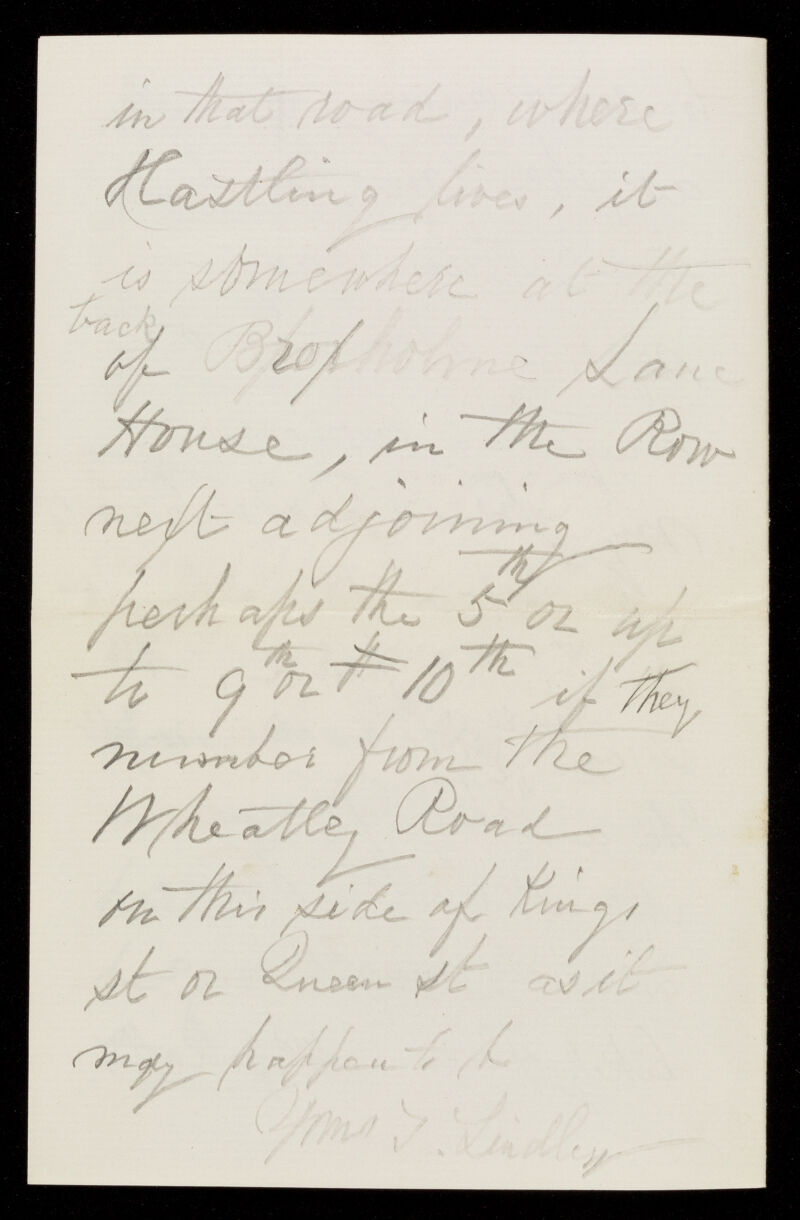 in that road, where
Hastling lives, it
is somewhere at the
back
of Bropholme Lane
House, in the Row
next adjoining
perhaps the 5th or up
to 9th or 10th if they
number from the
Wheatley Road
on this side of Kings
st or Queen st as it
may happen to be
Yours T. Lindley